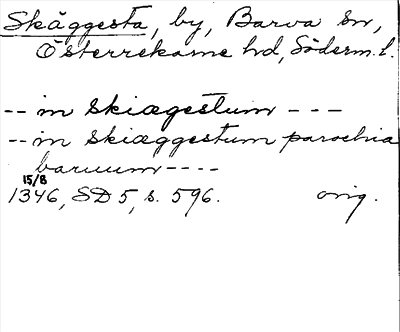 Skäggesta, by, Barva sn,
Österrekarne hd, Söderm. l.
-- in skiægestum ---
-- in skiæggestum parochia
baruum ----
15/8
1346, SD 5, s. 596. orig.